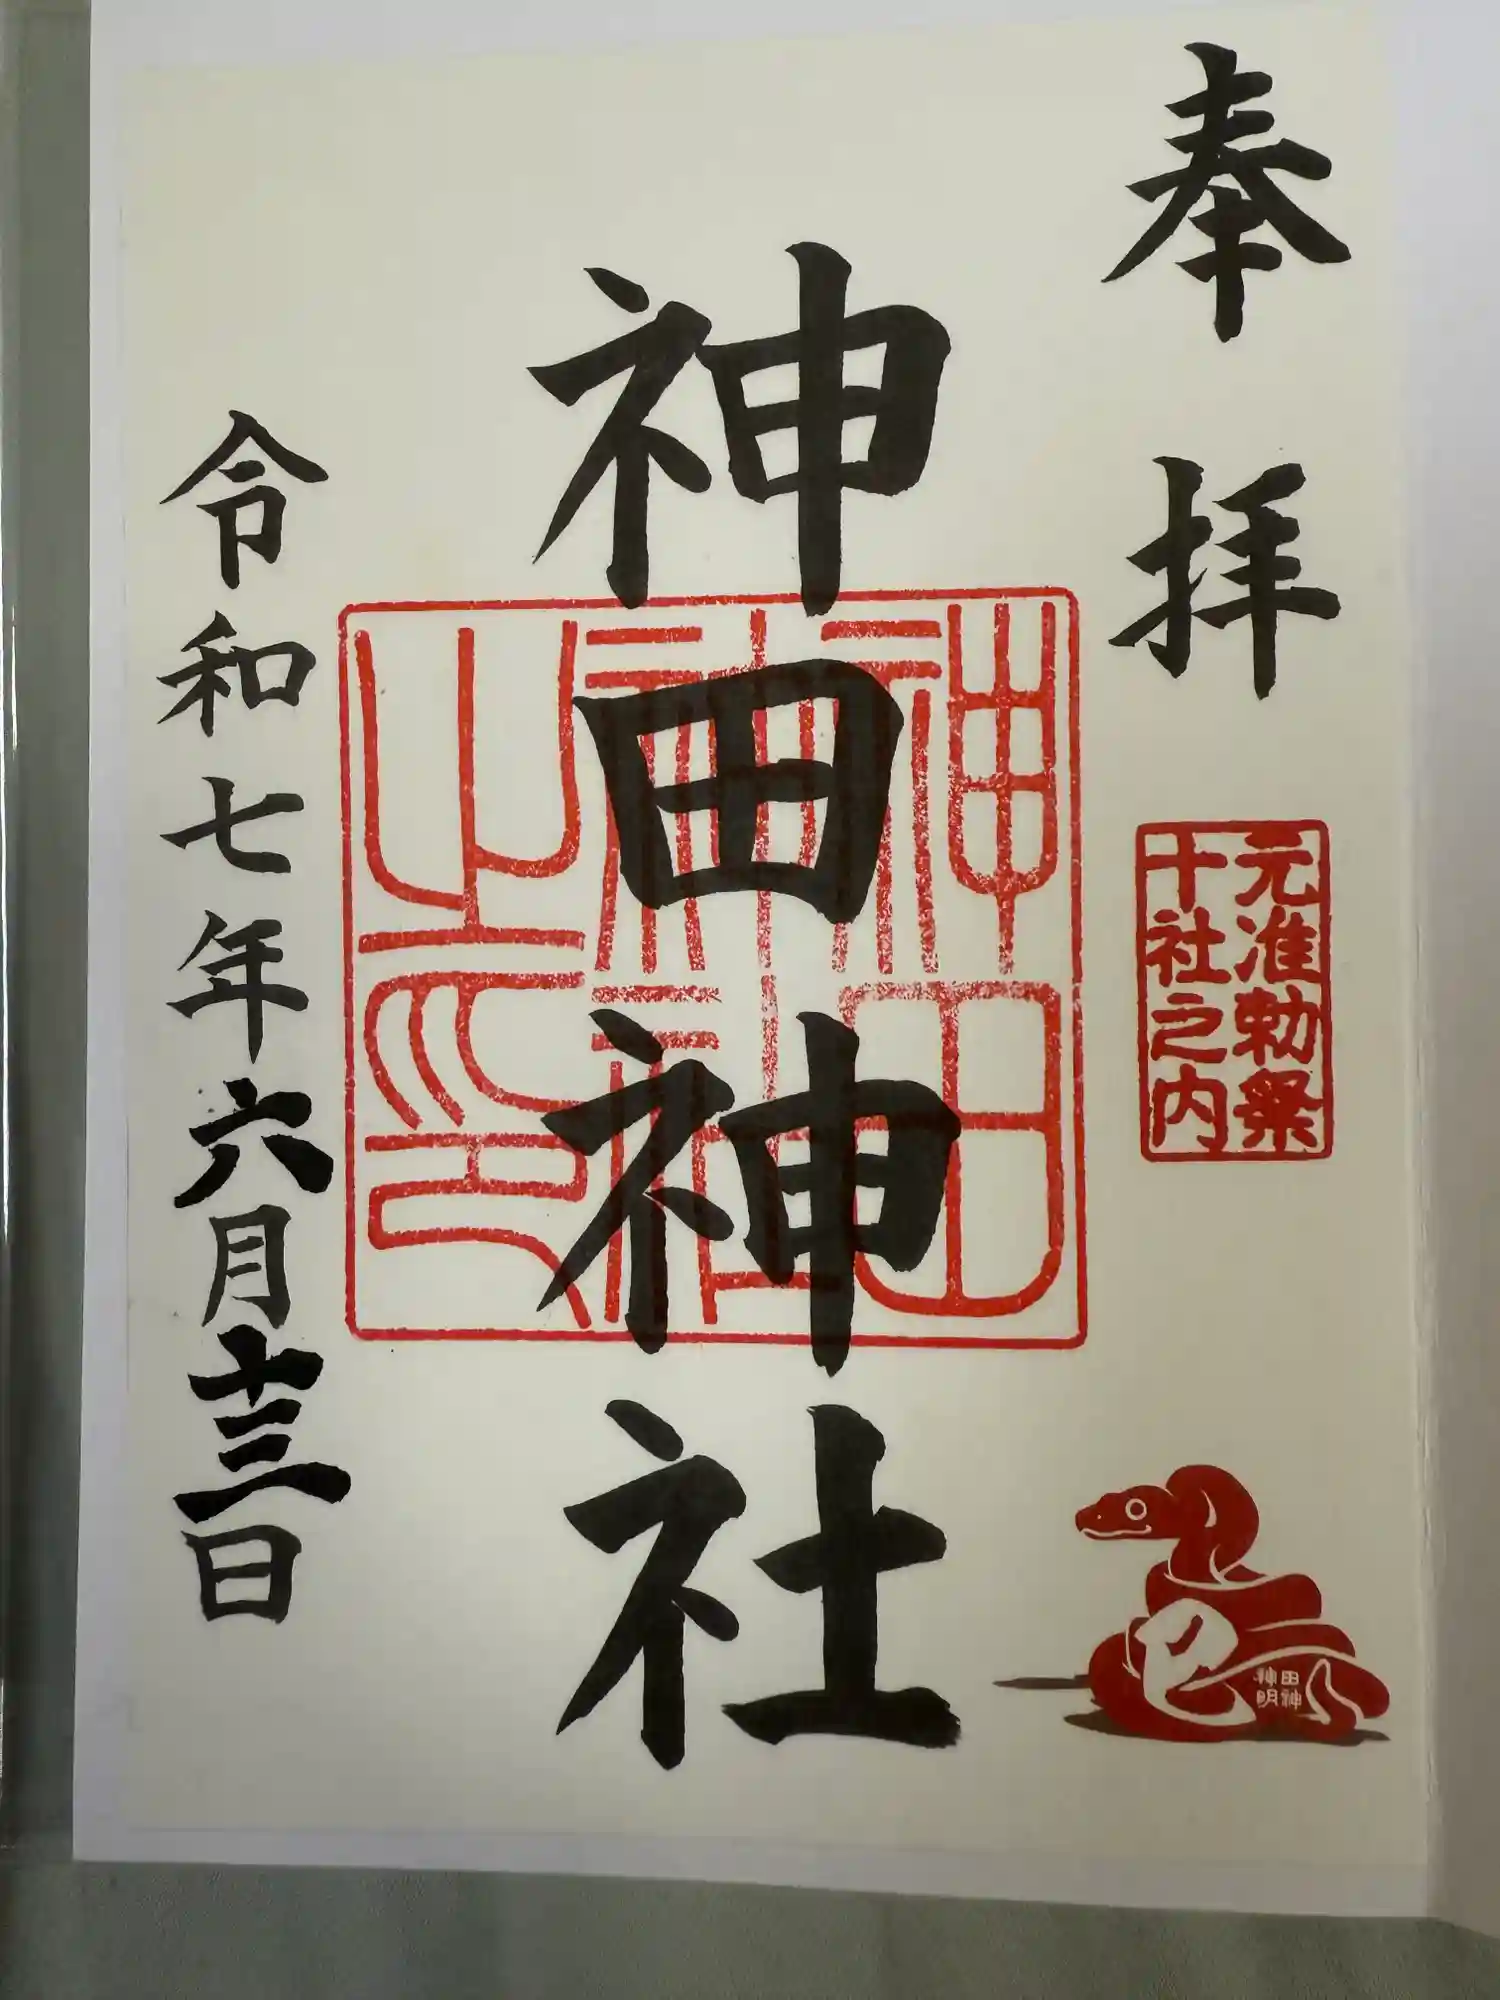 奉拝
元准勅祭
十社之内
巳
田神
神明
神田神社
神田
神社
之印
令和七年六月十三日